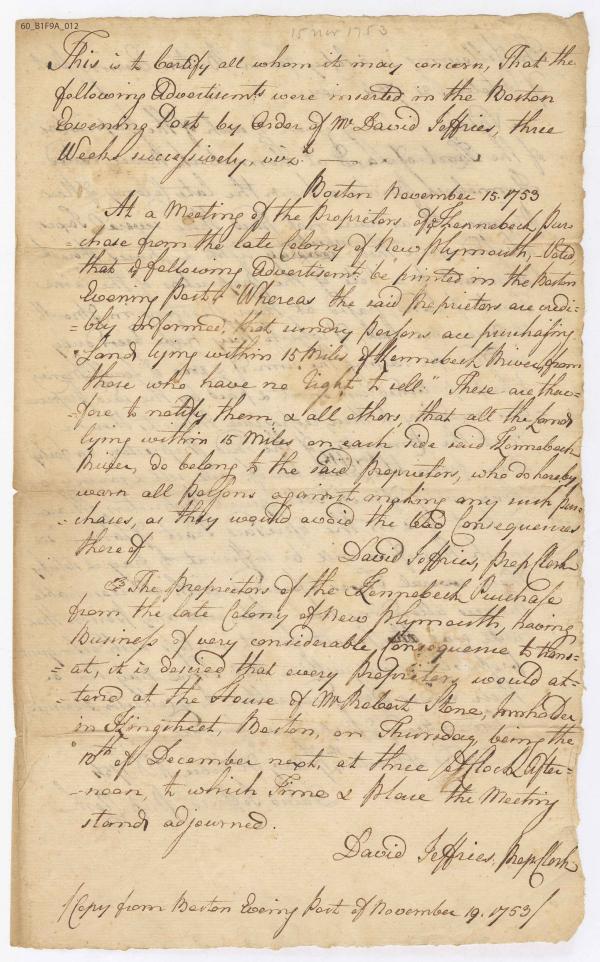 60_B1F9A_012
15 Nov 1753
This is to Certify all whom it may concern, That the
following Advertisemts were inserted in the Boston
Evening Post by Order of Mr David Jeffries, three
Weeks successively, vizt
Boston November 15. 1753
At a Meeting of the Proprietors of ye Kennebeck Pur-
-chase from the late Colony of New Plymouth, Voted
that ye following Advertisemt be printed in the Boston
Evening Post. "Whereas the said Proprietors are credi-
-bly informed, that sundry Persons are purchasing
Lands lying within 15 Miles of Kennebeck River, from
those who have no Right to sell:" These are there-
-fore to notify them & all others, that all the Lands
lying within 15 Miles on each side said Kennebeck
River, do belong to the said Proprietors, who do hereby
warn all Persons against making any such Pur-
-chases, as they would avoid the bad Consequences
thereof
David Jeffries, Prop Clerk
The Proprietors of the Kennebeck Purchase
from the late Colony of New Plymouth, having
Business of very considerable Consequence to trans-
-act, it is desired that every Proprietor would at-
-tend at the House of Mr Robert Stone, Innholder
in Kingstreet, Boston, on Thursday, being the
of December next, at three o'Clock After-
-noon, to which Time & Place the Meeting
stands adjourned.
David Jeffries, Prop Clerk
/Copy from Boston Evening Post of November 19. 1753/